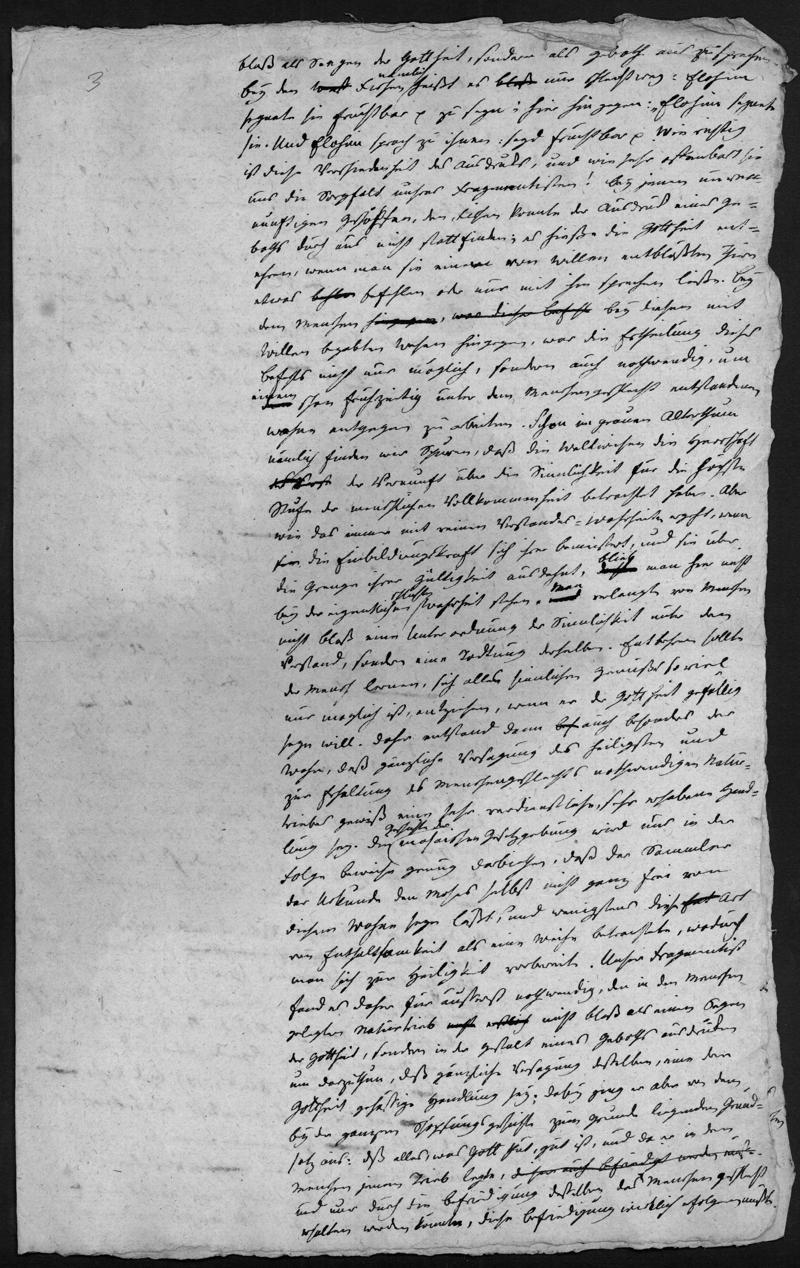 3
bloß als Seegen der Gottheit, sondern als geboth auszusprechen.
bey den Fischen nämlich heißt es bloß nur schlechtweg: Elohim
segnete sie fruchtbar zu seyn; hier hingegen: „Elohim segnete
sie. Und Elohim sprach zu ihnen: seyd fruchtbar Wie richtig
ist diese Verschiedenheit des Ausdruks, und wie sehr offenbart sie
uns die Sorgfalt unsres Fragmentisten! bey jenen unver-
nünftigen Geschöpfen, den Fischen konnte der Ausdruk eines Ge-
boths durchaus nicht stattfinden; es hieße die Gottheit ent-
ehren, wenn man sie einem von Willen entblößten Thiere
etwas befehlen oder nur mit ihm sprechen ließe. bey
dem Menschen hingegen, bey diesem mit
Willen begabten Wesen hingegen, war die Ertheilung dieses
befehls nicht nur möglich, sondern auch nothwendig, um
einem schon frühzeitig unter dem Menschengeschlecht entstandenen
wahne entgegen zu arbeiten. Schon im grauen Alterthum
nämlich finden wir Spuren, daß die Weltweisen die Herrschaft
der Vernunft über die Sinnlichkeit für die höchste
Stufe der menschlichen Vollkommenheit betrachtet haben. Aber
wie das immer mit reinen Verstandes-Wahrheiten geht, wenn
die Einbildungskraft sich ihrer bemeistert, und sie über
die Grenze ihrer Gültigkeit ausdehnt, blieb man hier nicht
bey der eigentlichen Wahrheit stehen. Man verlangte vom Menschen
nicht bloß eine Unterordnung der Sinnlichkeit unter dem
Verstand, sondern eine Tödtung derselben. Entbehren sollte
der Mensch lernen, sich allen sinnlichen Genüssen so viel
nur möglich ist, entziehen, wenn er der Gottheit gefällig
seyn will. daher entstand dann auch besonders der
Wahn, daß gänzliche Versagung des heiligsten und
zur Erhaltung des Menschengeschlechts nothwendigen Natur-
triebes gewiß eine sehr verdienstliche, sehr erhabene Hand-
lung sey. Die Geschichte der mosaischen Gesetzgebung wird uns in der
Folge beweise genug darbiethen, daß der Sammler
der Urkunde den Moses selbst nicht ganz frei von
diesem Wahne seyn läßt, und wenigstens diese Art
von Enthaltsamkeit als eine Weihe betrachtete, wodurch
man sich zur Heiligkeit vorbereite. Unser Fragmentist
fand es daher für äusserst nothwendig, den in den Menschen
gelegten Naturtrieb nicht bloß als einen Segen
der Gottheit, sondern in der Gestalt eines Geboths auszudrüken
um darzuthun, daß gänzliche Versagung desselben, eine der
Gottheit gehässige Handlung sey; dabey ging er aber von dem,
bey der ganzen Schöpfungsgeschichte zum Grunde liegenden Grund-
satz aus: daß alles was Gott schuf, gut ist, und da er in dem
Menschen jenen Trieb legte,
und nur durch die befriedigung desselben das Menschengeschlecht
erhalten werden konnte, diese befriedigung wirklich erfolgen müsse.